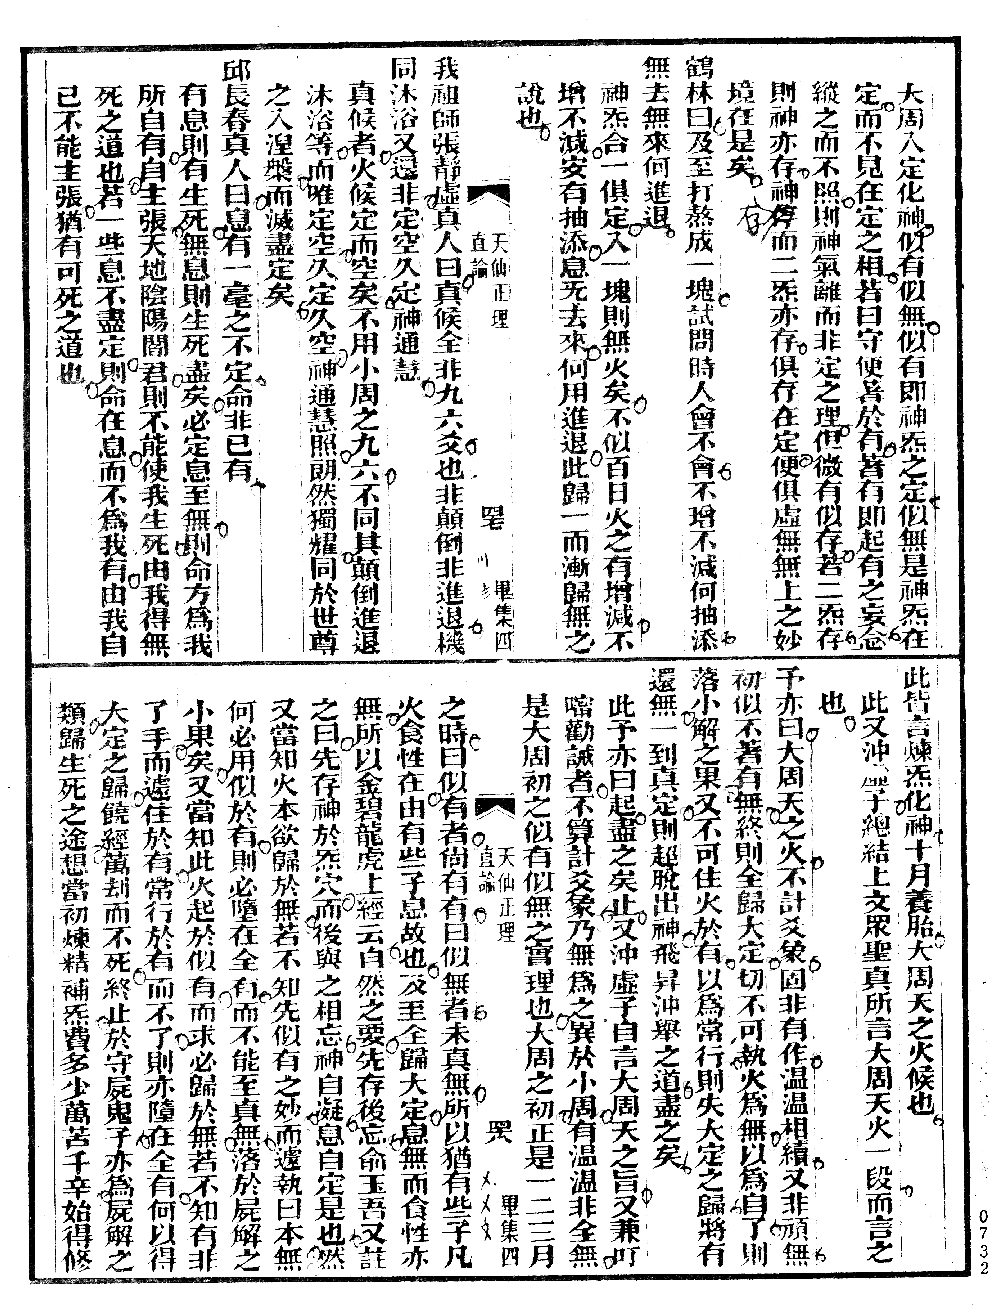 大周入定化神似有似無似有即神炁之定似無是神炁在
定而不見在定之相若曰守便著於有著有即起有之妄念
縱之而不照則神氣離而非定之理但微有似存若二炁存
則神亦存神存而二炁亦存俱存在定便俱虛無無上之妙
境在是矣
存
鶴林曰及至打熬成一塊試問時人會不會不增不減何抽添
無去無來何進退
神炁合一俱定入一塊則無火矣不似百日火之有增減不
增不減安有抽添息无去來何用進退此歸一而漸歸無之
說也
天仙正理
直論
畢集四
我祖師張靜虛真人曰真候全非九六爻也非顛倒非進退機
同沐浴又還非定空久定神通慧
真候者火候定而空矣不用小周之九六不同其顛倒進退
沐浴等而唯定空久定久空神通慧照朗然獨耀同於世尊
之入涅槃而滅盡定矣
邱長春真人曰息有一毫之不定命非已有
有息則有生死無息則生死盡矣必定息至無則命方為我
所自有自主張天地陰陽閻君則不能使我生死由我得無
死之道也若一些息不盡定則命在息而不為我有由我自
已不能主張猶有可死之道也
此皆言煉炁化神十月養胎大周天之火候也
此又沖虛子總結上文眾聖真所言大周天火一段而言之
也
予亦曰大周天之火不計爻象固非有作温温相續又非頑無
初似不著有無終則全歸大定切不可執火為無以為自了則
落小解之果又不可住火於有以為常行則失大定之歸將有
還無一到真定則超脫出神飛昇沖舉之道盡之矣
此予亦曰起盡之矣止又沖虛子自言大周天之旨又兼叮
嚀勸誡者不算計爻象乃無為之異於小周有温温非全無
是大周初之似有似無之實理也大周之初正是一二三月
天仙正理
直論
畢集四
之時曰似有者尚有有曰似無者未真無所以猶有些子凡
火食性在由有些子息故也及至全歸大定息無而食性亦
無所以金碧龍虎上經云自然之要先存後忘俞玉吾又註
之曰先存神於炁穴而後與之相忘神自凝息自定是也然
又當知火本欲歸於無若不知先似有之妙而遽執曰本無
何必用似於有則必墮在全有而不能至真無落於屍解之
小果矣又當知此火起於似有而求必歸於無若不知有非
了手而遽住於有常行於有而不了則亦墮在全有何以得
大定之歸饒經萬刧而不死終止於守屍鬼子亦為屍解之
類歸生死之途想當初煉精補炁費多少萬苦千辛始得修
0732